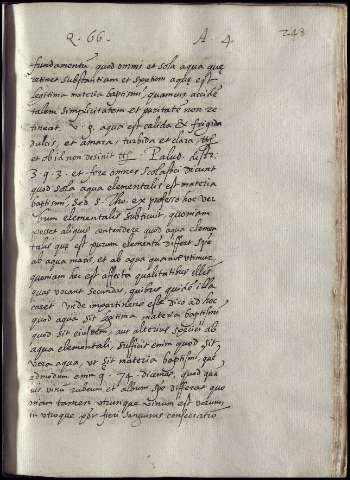 Q. 66. A. 4 243
fundamentū, quod omnis et sola aqua que
retinet substantiam et speciem aque est
legitima materia baptismi, quamuis acciden
talem simplicitatem et puritatē non re
tineat. V. g. aqua est calida & frigida
dulcis, et amara, turbida et clara,
et ob id non desinit Palud. dist.
3 q. 3. et fere omnes scholastici dicunt
quod sola aqua elementalis est materia
baptismi, sed S. Tho. ex professo hoc ver
bum elementalis subticuit, quoniam
posset aliquis contendere quod aqua elemen
talis que est purum elementū differt spe
ab aqua maris, et ab aqua quamvis utimur,
quoniam hec est affecta qualitatibus illis
quas vocant secundas, quibus quidē illa
caret. unde impertinens esse dico ad hoc
quod aqua sit legitima materia baptismi
quod sit eiusdem, aut alterius speciei ab
aqua elementali, sufficit enim quod sit
vera aqua, ut sit materia baptismi, que
admodum enim q. 74. dicemus, quod qua
vis vinū rubeum et album spe differat quo
niam tamen utrunque vinum est verum,
in utroque põt fieri sanguinis consecratio